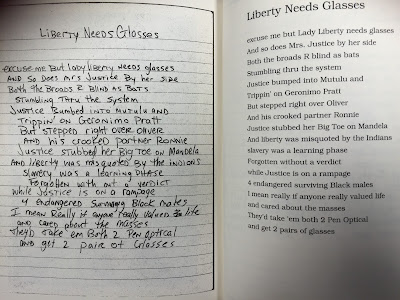 Liberty Needs Glosses
excuse me But lady liberty needs glasses
And so does mrs Justice By her side
Both the Broads R Blind as Bats
Stumbling Thru the system
Justice Bumped into Mutulu and
Trippin' on Geronimo Pratt
But stepped right over Oliver
And his crooked partner Ronnie
Justice stubbed her Big Toe on Mandela
And liberty was misquoted By the Indians
Slavery was a learning phase
Forgotten with out a verdict
while Justice is on a rampage
4 endangered Surviving Black males
I mean Really if anyone really valued life
and cared about the masses
They'd Take 'em Both 2 Pen Optical
and get 2 pair of Glasses
Liberty Needs Glasses
excuse me but Lady Liberty needs glasses
And so does Mrs. Justice by her side
Both the broads R blind as bats
Stumbling thru the system
Justice bumped into Mutulu and
Trippin' on Geronimo Pratt
But stepped right over Oliver
And his crooked partner Ronnie
Justice stubbed her Big Toe on Mandela
And liberty was misquoted by the Indians
slavery was a learning phase
Forgotten without a verdict
while Justice is on a rampage
4 endangered surviving Black males
I mean really if anyone really valued life
and cared about the masses
They'd take 'em both 2 Pen Optical
and get 2 pairs of glasses